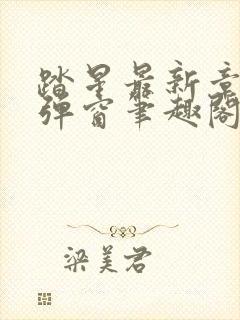 踏星最新章
弹窗笔趣阁
梁美君